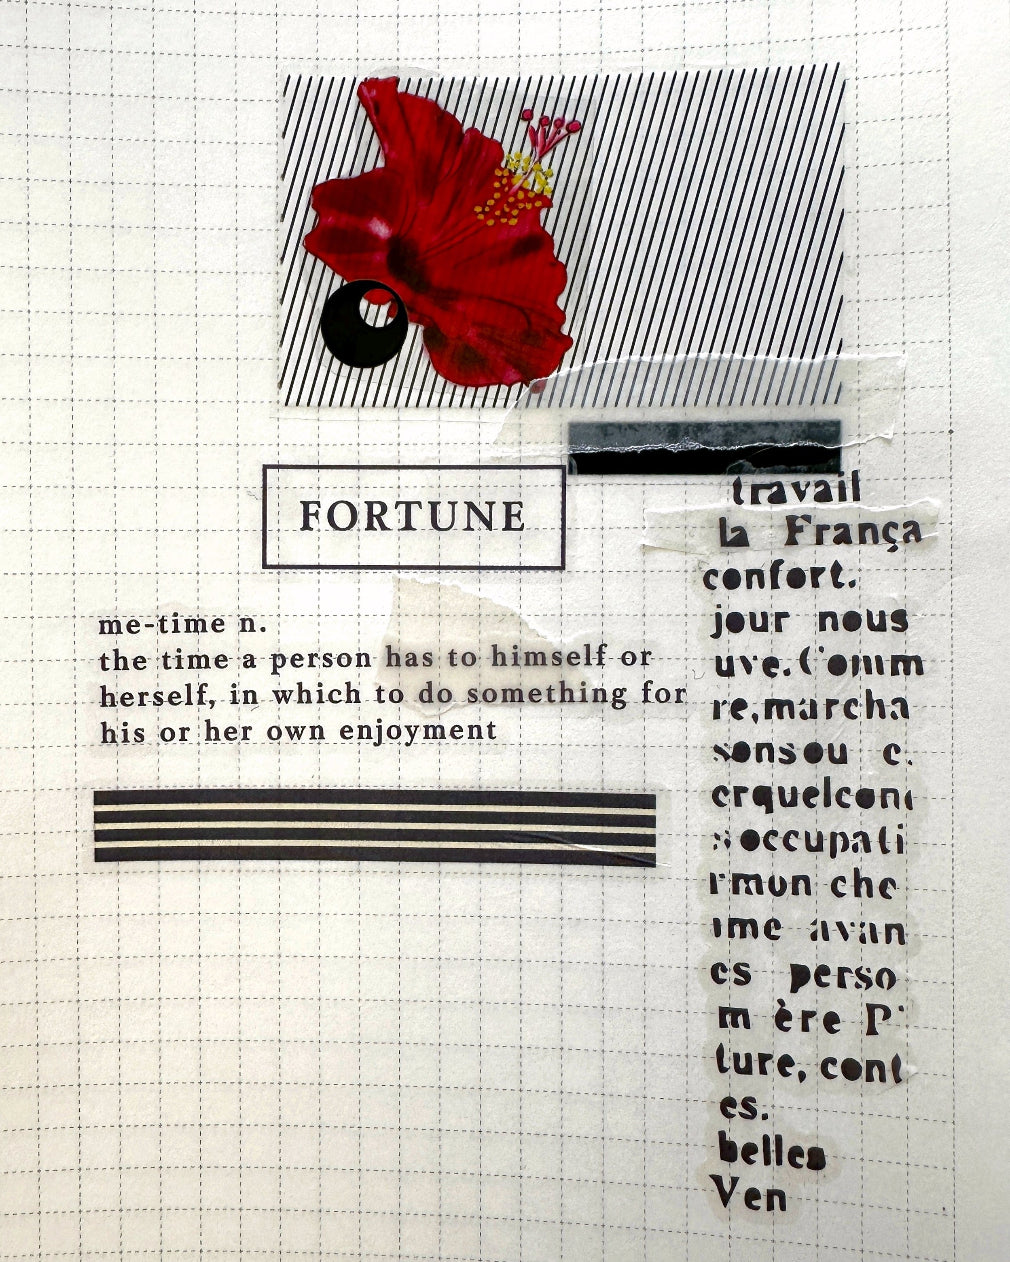 FORTUNE
me-time n.
the time a person has to himself or
herself, in which to do something for
his or her own enjoyment
travail
la França
confort.
jour nous
uve. Comm
re, marcha
sonsou c.
erquelcon
occupati
rmon che
ime avan
es perso
m ère P'
ture, cont
es.
belles
Ven